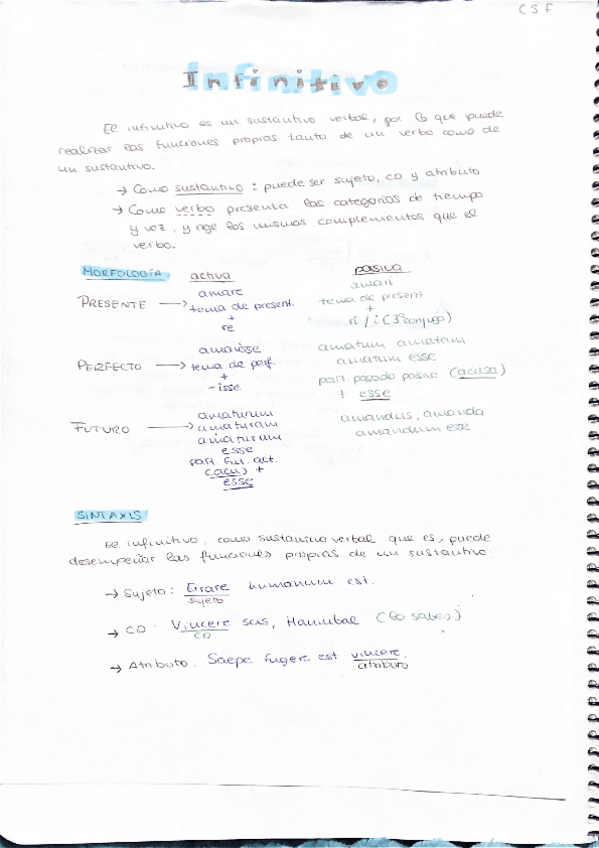 CSF
Infinitivo
El infinitivo es un sustantivo verbal, por lo que puede
realizar las funciones propias tanto de un verbo como de
un sustantivo.
→ Como sustantivo: puede ser sujeto, CD y atributo
→ Como verbo presenta las categorías de tiempo
y voz, y rige los mismos complementos que el
verbo.
MORFOLOGÍA activa pasiva
PRESENTE → amare amari
tema de present. tema de present
+ +
re ri / i (3ª conjug)
PERFECTO → amavisse amatum amatam
tema de perf. amatum esse
+ part. pasado pasivo (acusa)
-isse + esse
FUTURO → amaturum amandus, amanda
amaturam amandum esse
amaturum
esse
part. fut. act.
(acus) +
esse
SINTAXIS
El infinitivo, como sustantivo verbal que es, puede
desempeñar las funciones propias de un sustantivo:
→ Sujeto: Errare humanum est.
sujeto
→ CD: Vincere scis, Hannibal (lo sabes)
CD
→ Atributo. Saepe fugere est vincere.
atributo